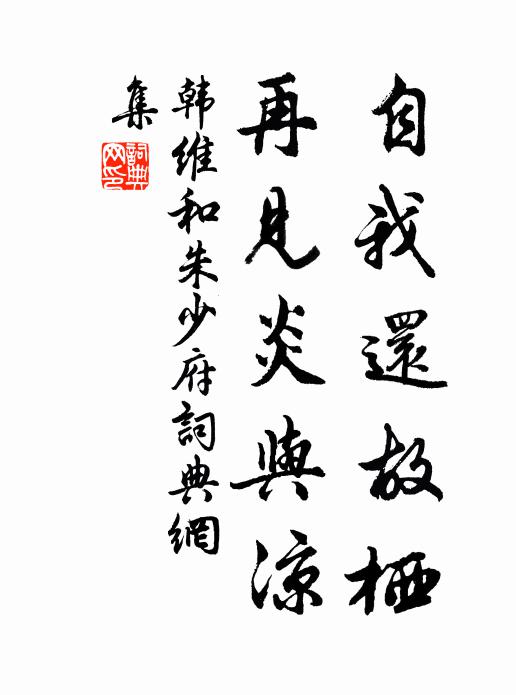 自我還故栖
再見炎與涼
韩维和朱少府詞典網
集
詞典網印